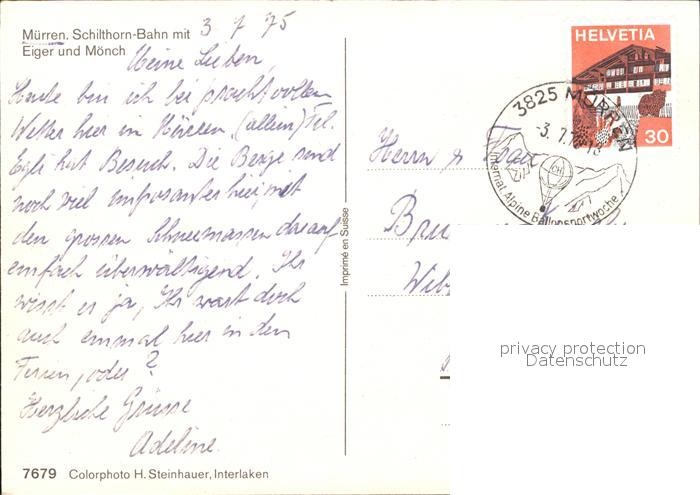 Mürren. Schilthorn-Bahn mit
Eiger und Mönch
3 7 75
Meine Lieben,
Heute bin ich bei prachtvollem
Wetter hier in Mürren (allein) Frl.
Egli hat Besuch. Die Berge sind
noch viel imposanter hier mit
den grossen Schneemassen darauf
einfach überwältigend. Ihr
wisst es ja, Ihr wart doch
auch einmal hier in den
Ferien, oder?
Herzliche Grüsse
Adeline.
7679 Colorphoto H. Steinhauer, Interlaken
Imprimé en Suisse
HELVETIA
30
3825 MÜRREN
-3. 7. 7
Internat. Alpine Ballonsportwoche
CH
Herrn u Frau
Bru
Wib
privacy protection
Datenschutz